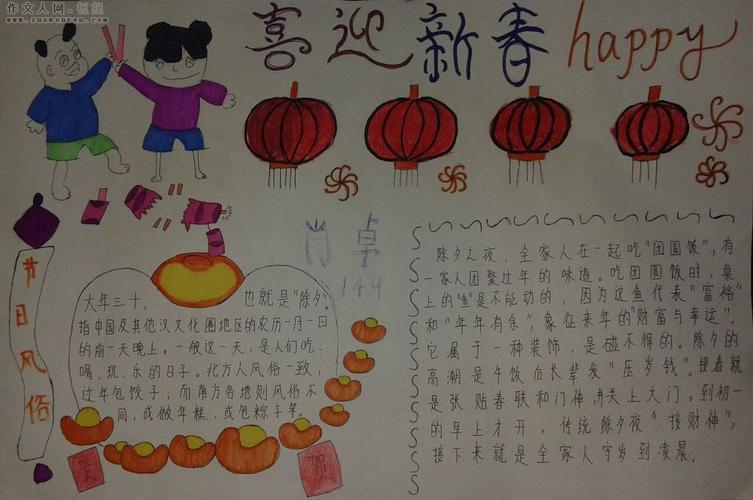 作文人网·板报
www.zuowenren.com
喜迎新春happy
肖卓
149
节日风俗
大年三十, 也就是"除夕"。
指中国及其他汉文化圈地区的农历一月一日
的前一天晚上。一般这一天,是人们吃、
喝、玩、乐的日子。北方人风俗一致,
过年包饺子;而南方各地则风俗不
同,或做年糕、或包粽子等。
贺
贺
除夕之夜,全家人在一起吃"团圆饭",有
一家人团聚过年的味道。吃团圆饭时,桌
上的"鱼"是不能动的,因为这鱼代表"富裕"
和"年年有余",象征来年的"财富与幸运",
它属于一种装饰,是碰不得的。除夕的
高潮是午饭后长辈发"压岁钱"。接着就
是张贴春联和门神,并关上大门。到初一
的早上才开,传统除夕夜"接财神",
接下来就是全家人守岁到凌晨。